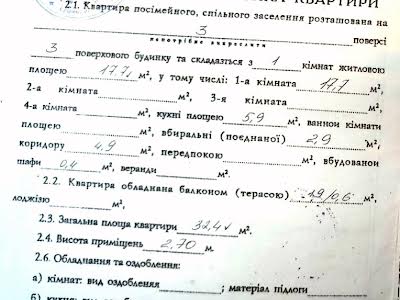 КВАРТИРИ
2.1. Квартира посімейного, спільного заселення розташована на
3 поверсі
непотрібне викреслити
3 поверхового будинку та складається з 1 кімнат житловою
площею 17,7 м², у тому числі: 1-а кімната 17,7 м²,
2-а кімната м², 3-я кімната м²,
4-а кімната м², кухні площею 5,9 м², ванної кімнати
площею м², вбиральні (поєднаної) 2,9 м²,
коридору 4,9 м², передпокою м², вбудованої
шафи 0,4 м², веранди м².
2.2. Квартира обладнана балконом (терасою) 1,9/0,6 м²,
лоджією м²,
2.3. Загальна площа квартири 32,4 м²
2.4. Висота приміщень 2,70 м.
2.6. Обладнання та оздоблення:
а) кімнат: вид оздоблення ; матеріал підлоги